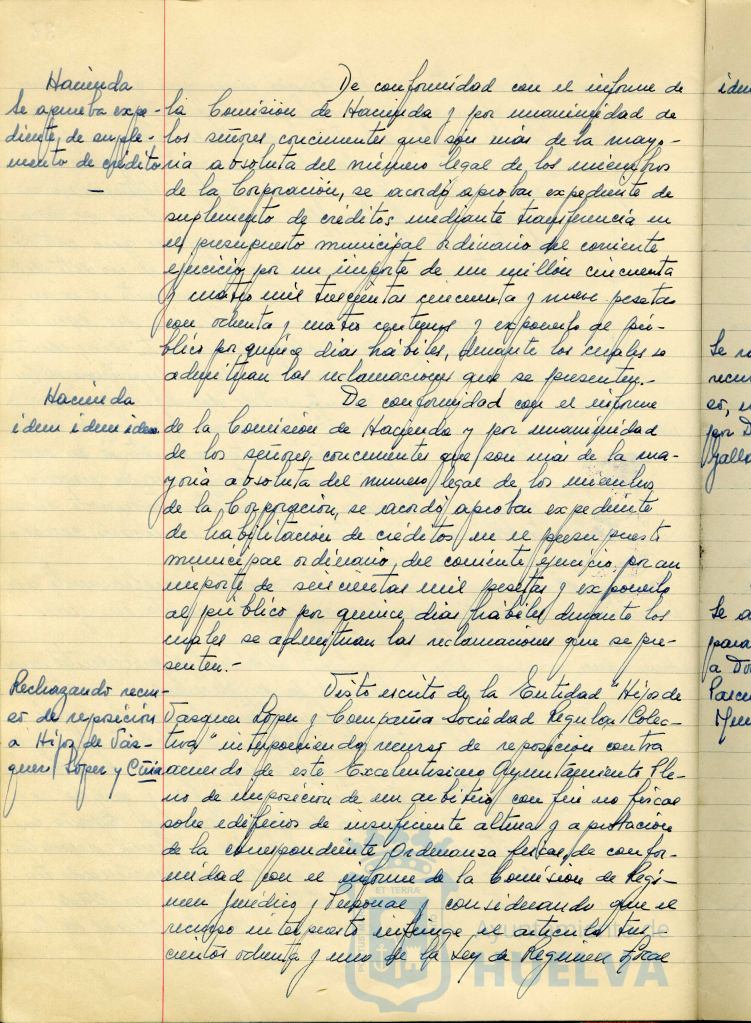 Hacienda
Se aprueba expe-
diente de suple-
mento de crédito
De conformidad con el informe de
la Comisión de Hacienda y por unanimidad de
los señores concurrentes que son más de la mayo-
ria absoluta del número legal de los miembros
de la Corporación, se acordó aprobar expediente de
suplemento de créditos mediante transferencia en
el presupuesto municipal ordinario del corriente
ejercicio por un importe de un millón cincuenta
y cuatro mil trescientas cincuenta y nueve pesetas
con ochenta y cuatro centimos y exponerlo al pú-
blico por quince dias hábiles, durante los cuales se
admitiran las reclamaciones que se presenten.-
Hacienda
idem idem idem
De conformidad con el informe
de la Comisión de Hacienda y por unanimidad
de los señores concurrentes que son más de la ma-
yoria absoluta del número legal de los miembros
de la Corporación, se acordó aprobar expediente
de habilitación de créditos en el presupuesto
municipal ordinario del corriente ejercicio por un
importe de seiscientas mil pesetas y exponerlo
al público por quince dias hábiles durante los
cuales se admitiran las reclamaciones que se pre-
senten.-
Rechazando recur-
so de reposición
a Hijos de Vás-
quez López y Cñia
Visto escrito de la Entidad "Hijos de
Vasquez López y Compañia Sociedad Regular Colec-
tiva" interponiendo recurso de reposición contra
acuerdo de este Excelentisimo Ayuntamiento Ple-
no de imposición de un arbitrio con fin no fiscal
sobre edificios de insuficiente altura y aprobación
de la correspondiente Ordenanza fiscal, de confor-
midad con el informe de la Comisión de Régi-
men Juridico y Personal y considerando que el
recurso interpuesto infringe el articulo tres
cientos ochenta y uno de la Ley de Regimen Local
idem
Se
recur
so,
por D
Gallo
Se a
para
a Do
ET TERRÆ
Ayuntamiento de
HUELVA